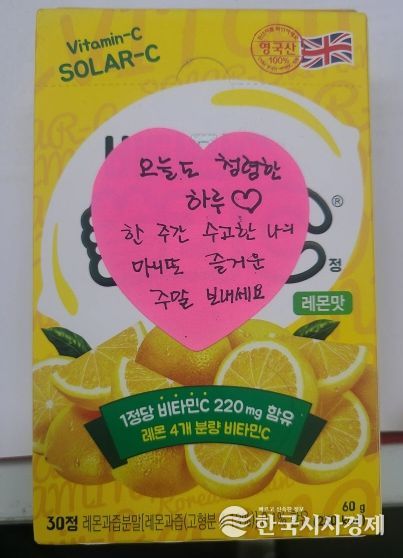 Vitamin-C
SOLAR-C
영국산
100%
오늘도 청렴한
하루♡
한 주간 수고한 나의
마니또 즐거운
주말 보내세요
®
정
레몬맛
1정당 비타민C 220mg 함유
레몬 4개 분량 비타민C
60 g
30정 레몬과즙분말[레몬과즙(고형분
빠르고 신속한 정보
한국시사경제